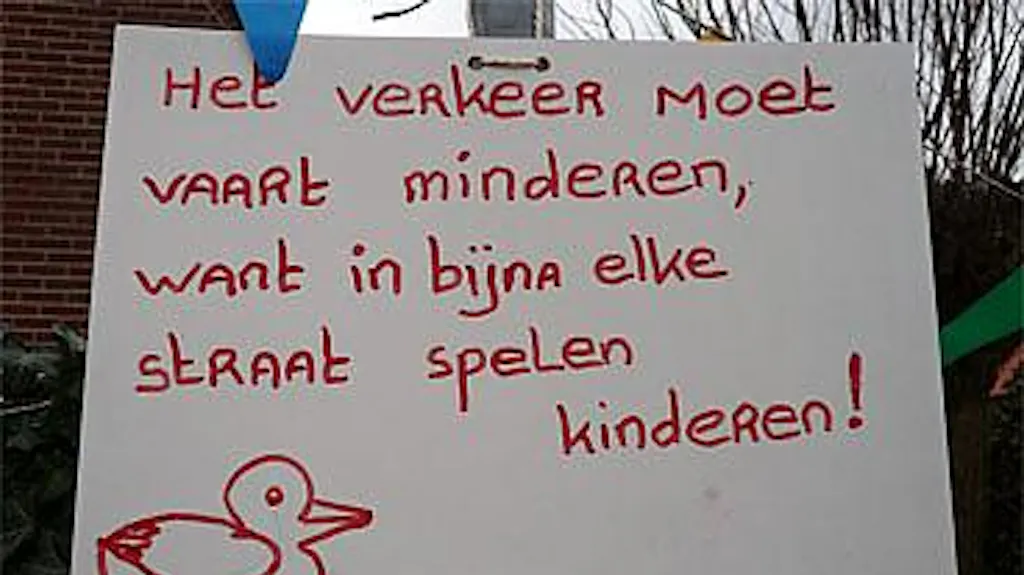 Het verkeer moet
vaart minderen,
want in bijna elke
straat spelen
kinderen!